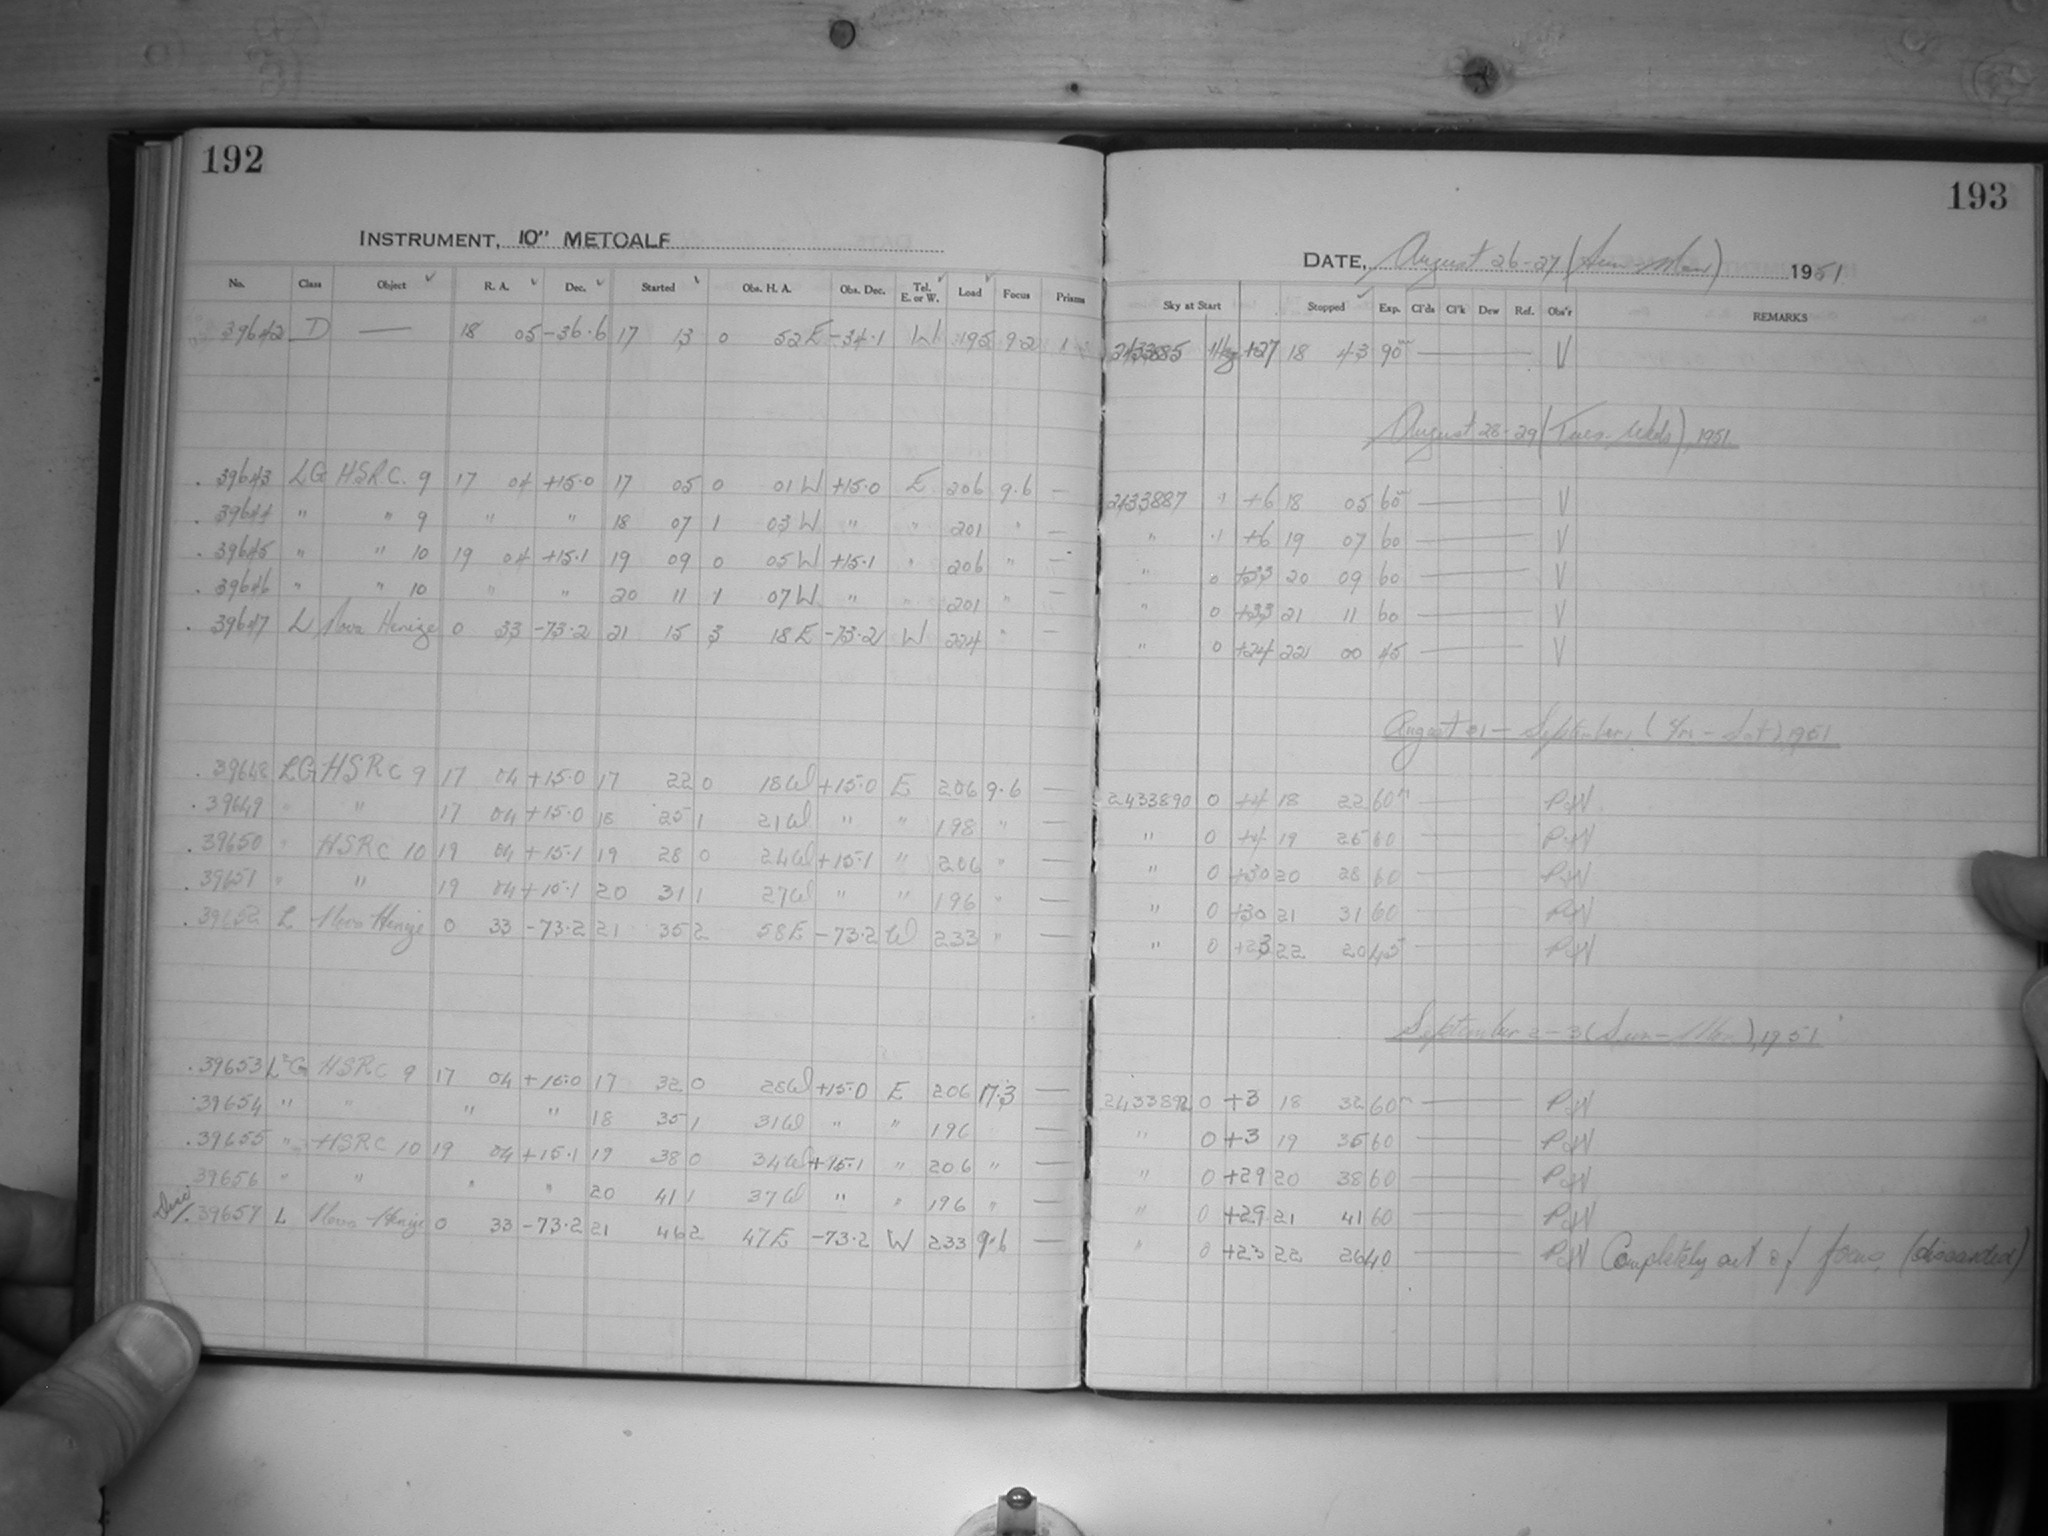 192
INSTRUMENT, 10" METCALF
No. Class Object R. A. Dec. Started Obs. H. A. Obs. Dec. Tel. E. or W. Load Focus Prisms
39642 D — 18 05 -36.6 17 13 0 52 E -34.1 W 195 9.2 1
39643 LG HSRC. 9 17 04 +15.0 17 05 0 01 W +15.0 E 206 9.6 —
39644 " " 9 " " 18 07 1 03 W " " 201 " —
39645 " " 10 19 04 +15.1 19 09 0 05 W +15.1 " 206 " —
39646 " " 10 " " 20 11 1 07 W " " 201 " —
39647 L Nova Henize 0 33 -73.2 21 15 3 18 E -73.2 W 224 " —
39648 LG HSRC 9 17 04 +15.0 17 22 0 18 W +15.0 E 206 9.6 —
39649 " " 17 04 +15.0 18 25 1 21 W " " 198 " —
39650 " HSRC 10 19 04 +15.1 19 28 0 24 W +15.1 " 206 " —
39651 " " 19 04 +15.1 20 31 1 27 W " " 196 " —
39652 L Nova Henize 0 33 -73.2 21 35 2 58 E -73.2 W 233 " —
39653 L²G HSRC 9 17 04 +15.0 17 32 0 28 W +15.0 E 206 17.3 —
39654 " " " " 18 35 1 31 W " " 196 —
39655 " HSRC 10 19 04 +15.1 19 38 0 34 W +15.1 " 206 " —
39656 " " " " 20 41 1 37 W " " 196 " —
Disc. 39657 L Nova Henize 0 33 -73.2 21 46 2 47 E -73.2 W 233 9.6 —
193
DATE, August 26-27 (Sun-Mon) 1951
Sky at Start Stopped Exp. Cl'ds Cl'k Dew Ref. Obs'r REMARKS
2433885 +27 18 43 90ᵐ — V
August 28-29 (Tues-Weds), 1951
2433887 .1 +6 18 05 60ᵐ — V
" .1 +6 19 07 60 — V
" 0 +33 20 09 60 — V
" 0 +33 21 11 60 — V
" 0 +24 22 00 45 — V
August 31 - September 1 (Fri - Sat) 1951
2433890 0 +4 18 22 60ᵐ —
" 0 +4 19 25 60 —
" 0 +30 20 28 60 —
" 0 +30 21 31 60 —
" 0 +23 22 20 45 —
September 2-3 (Sun-Mon), 1951
2433892 0 +3 18 32 60ᵐ —
" 0 +3 19 35 60 —
" 0 +29 20 38 60 —
" 0 +29 21 41 60 —
" 0 +23 22 26 40 — Completely out of focus (discarded)